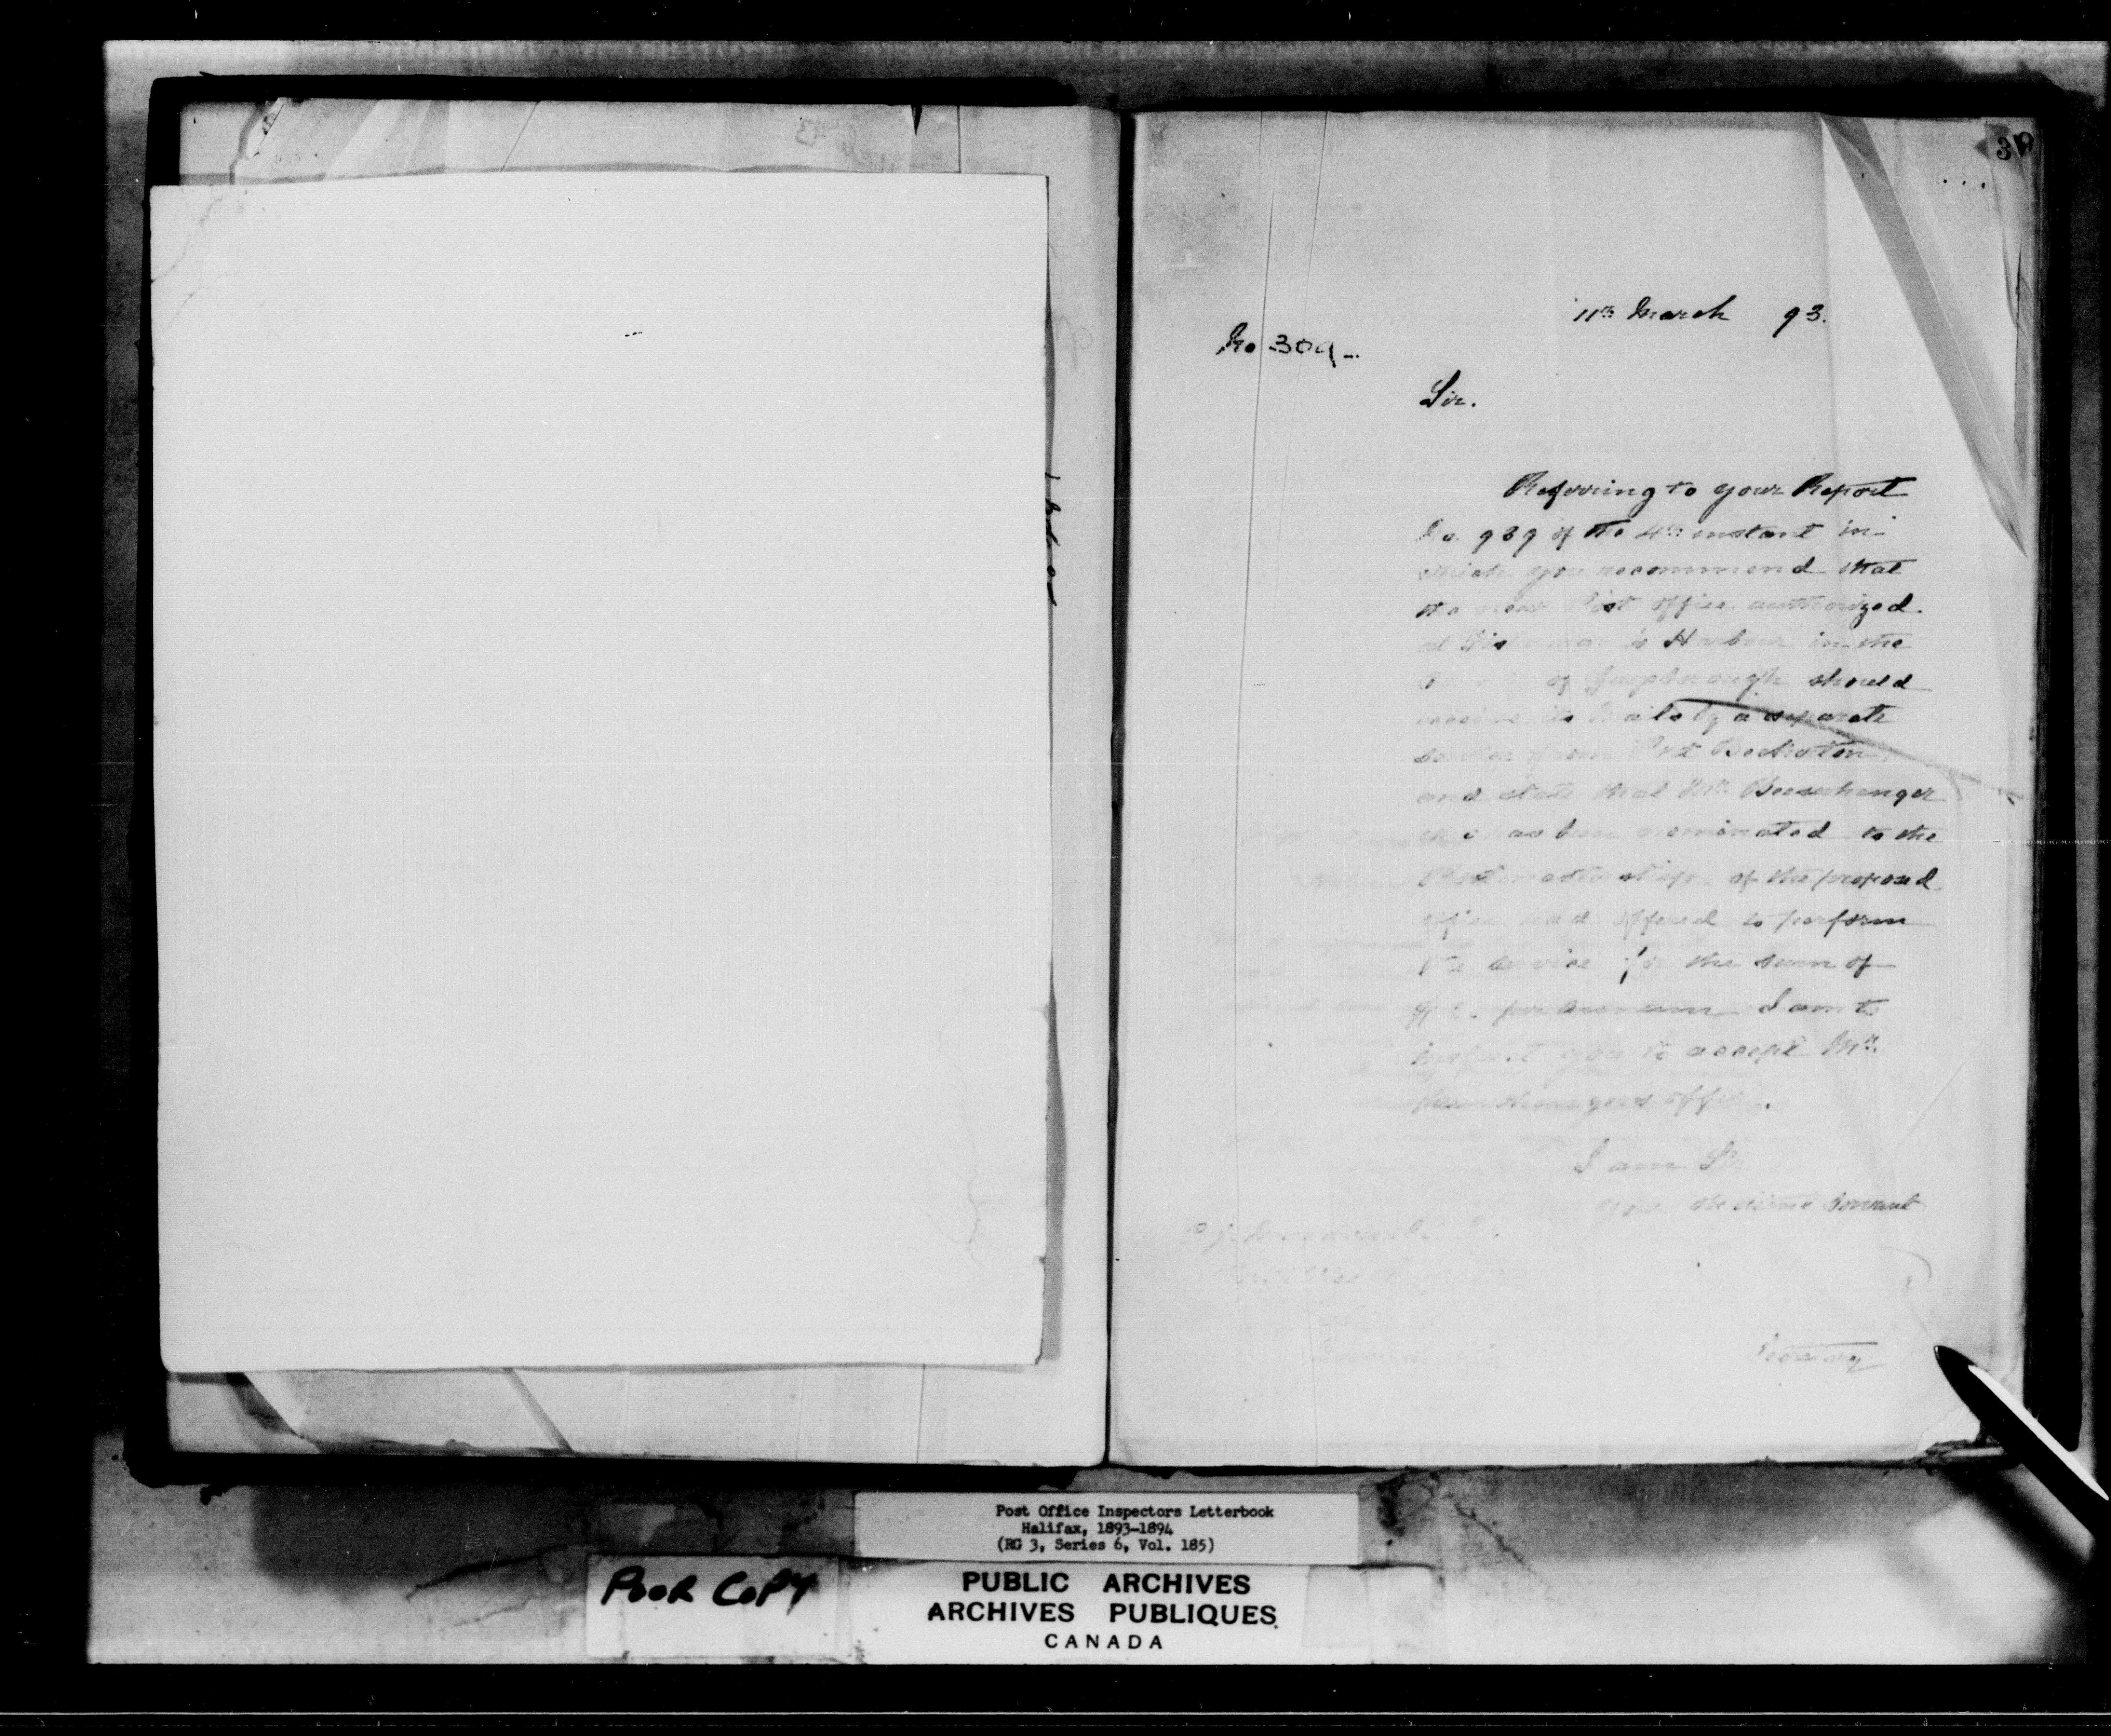 11th March 93.
No 309
Sir.
Referring to your Report
No. 939 of the 4th instant in
which you recommend that
the new Post office authorized
at Fisherman's Harbour in the
County of Guysborough should
receive its mails by a separate
service from Port Beckerton
and state that Mr.
who has been nominated to the
Postmastership of the proposed
office had offered to perform
the service for the sum of
per annum I am to
instruct you to accept Mr.
offer.
I am Sir
Your obedient Servant
Post Office Inspector
Secretary
Post Office Inspectors Letterbook
Halifax, 1893-1894
(RG 3, Series 6, Vol. 185)
POOR COPY
PUBLIC ARCHIVES
ARCHIVES PUBLIQUES
CANADA